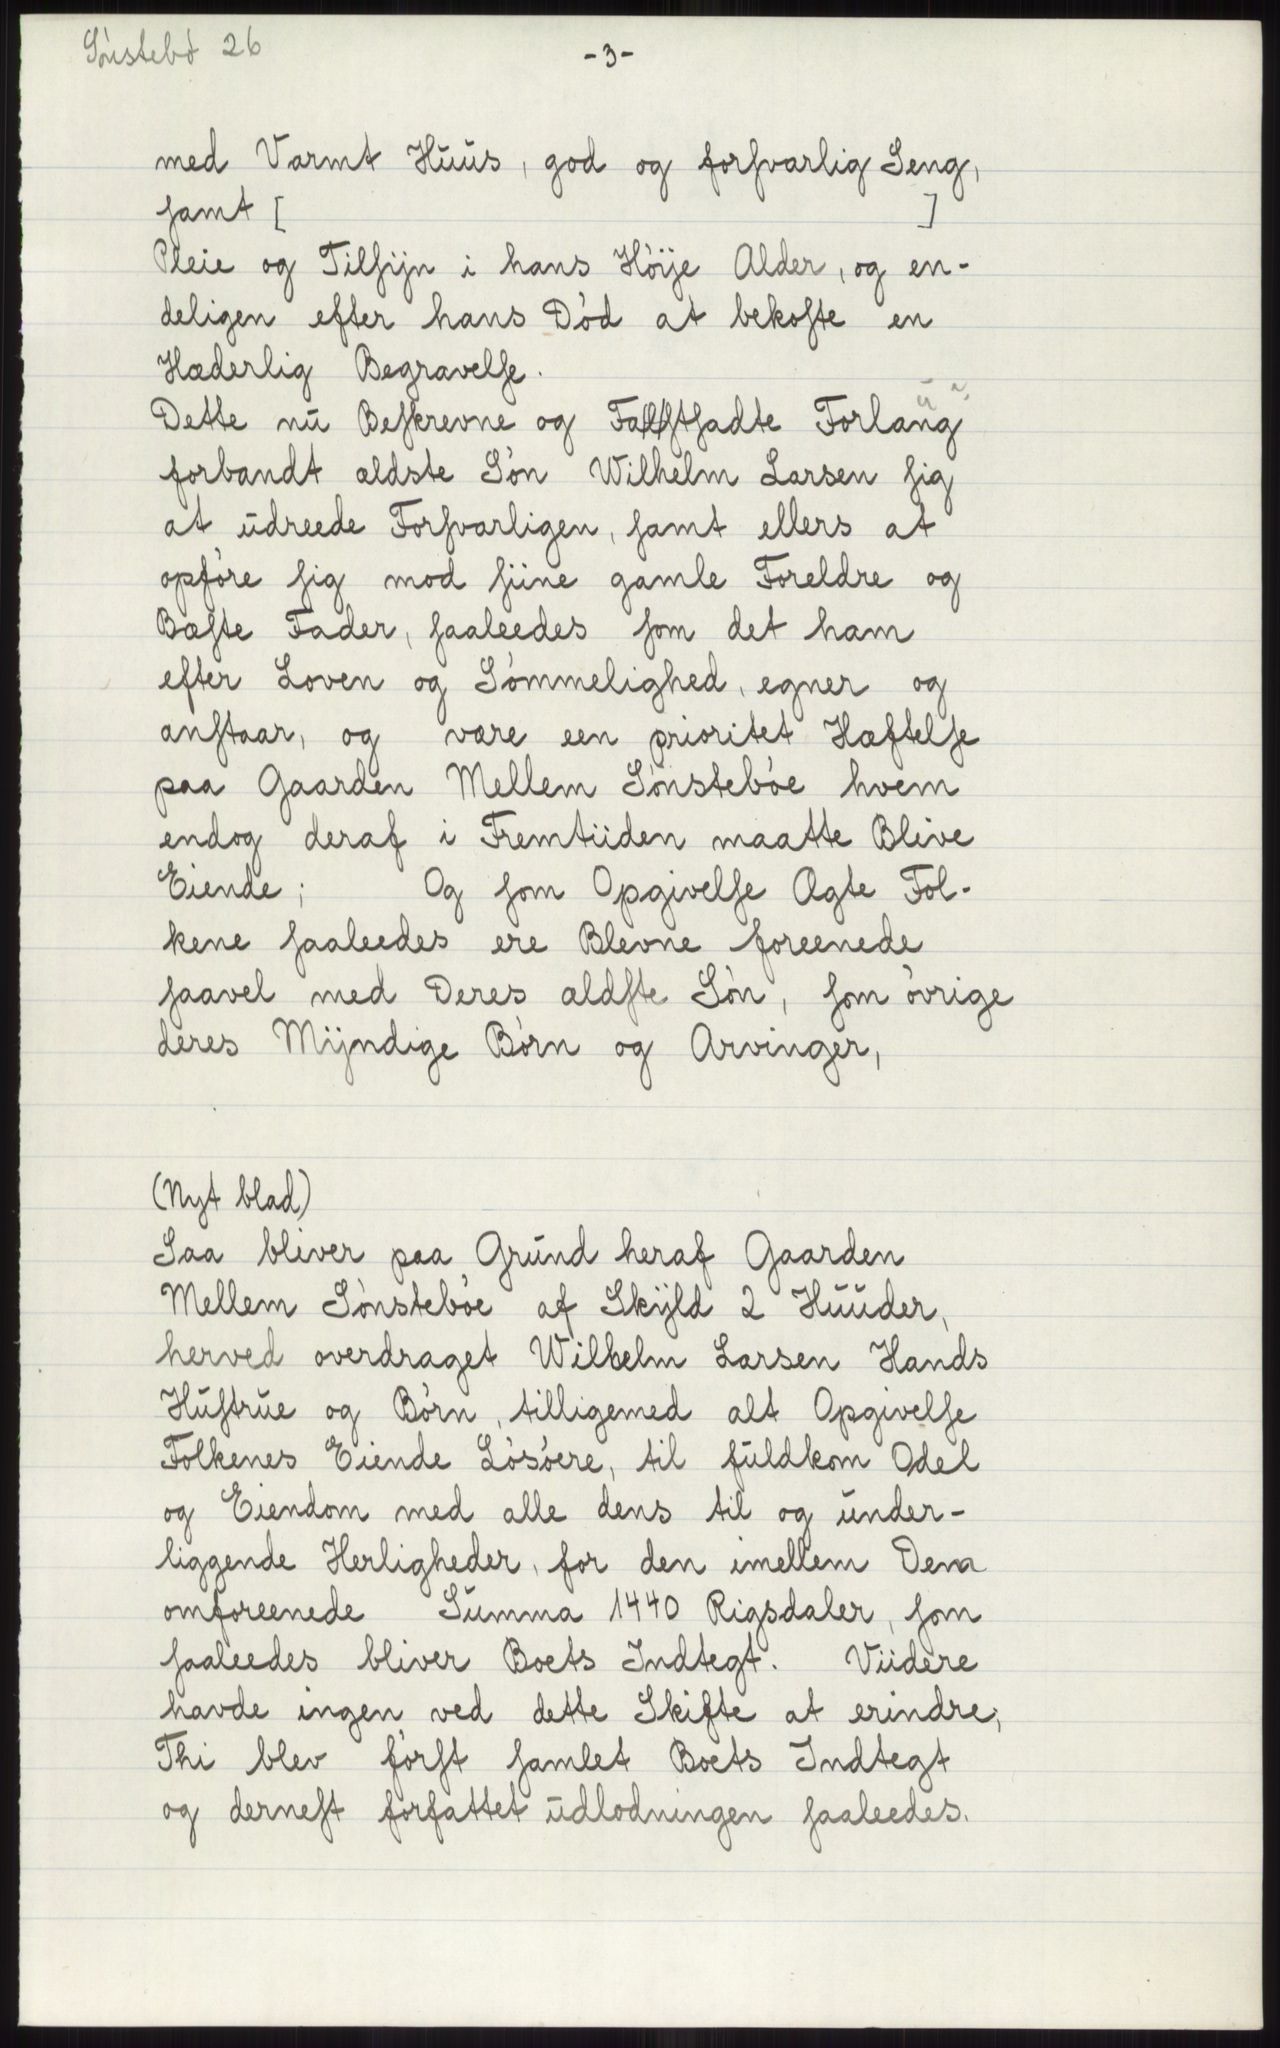 Sönstebö 26
-3-
med Varmt Huus, god og forsvarlig Seng,
samt [ ]
Pleie og Tilsijn i hans Höije Alder, og en-
deligen efter hans Död at bekoste en
Hæderlig Begravelse.
Dette nu Beskrevne og Faststsadte Forlang
forbandt ældste Sön Wilhelm Larsen sig
at udreede Forsvarligen, samt ellers at
opföre sig mod siine gamle Foreldre og
Bæste Fader, saaleedes som det ham
efter Loven og Sömmelighed, egner og
anstaar, og være een prioritet Hæftelse
paa Gaarden Mellem Sönsteböe hvem
endog deraf i Fremtiiden maatte Blive
Eiende; Og som Opgivelse Ægte Fol-
kene saaleedes ere Blevne foreenede
saavel med Deres ældste Sön, som övrige
deres Mijndige Börn og Arvinger,
(Nyt blad)
Saa bliver paa Grund heraf Gaarden
Mellem Sönsteböe af Skijld 2 Huuder,
herved overdraget Wilhelm Larsen Hands
Hustrue og Börn, tilligemed alt Opgivelse
Folkenes Eiende Lösöere, til fuldkom Odel
og Eiendom med alle dens til og under-
liggende Herligheder, for den imellem Dem
omforeenede Summa 1440 Rigsdaler, som
saaleedes bliver Boets Indtegt. Viidere
havde ingen ved dette Skifte at erindre,
Thi blev först samlet Boets Indtegt
og dernest forfattet udlodningen saaleedes.